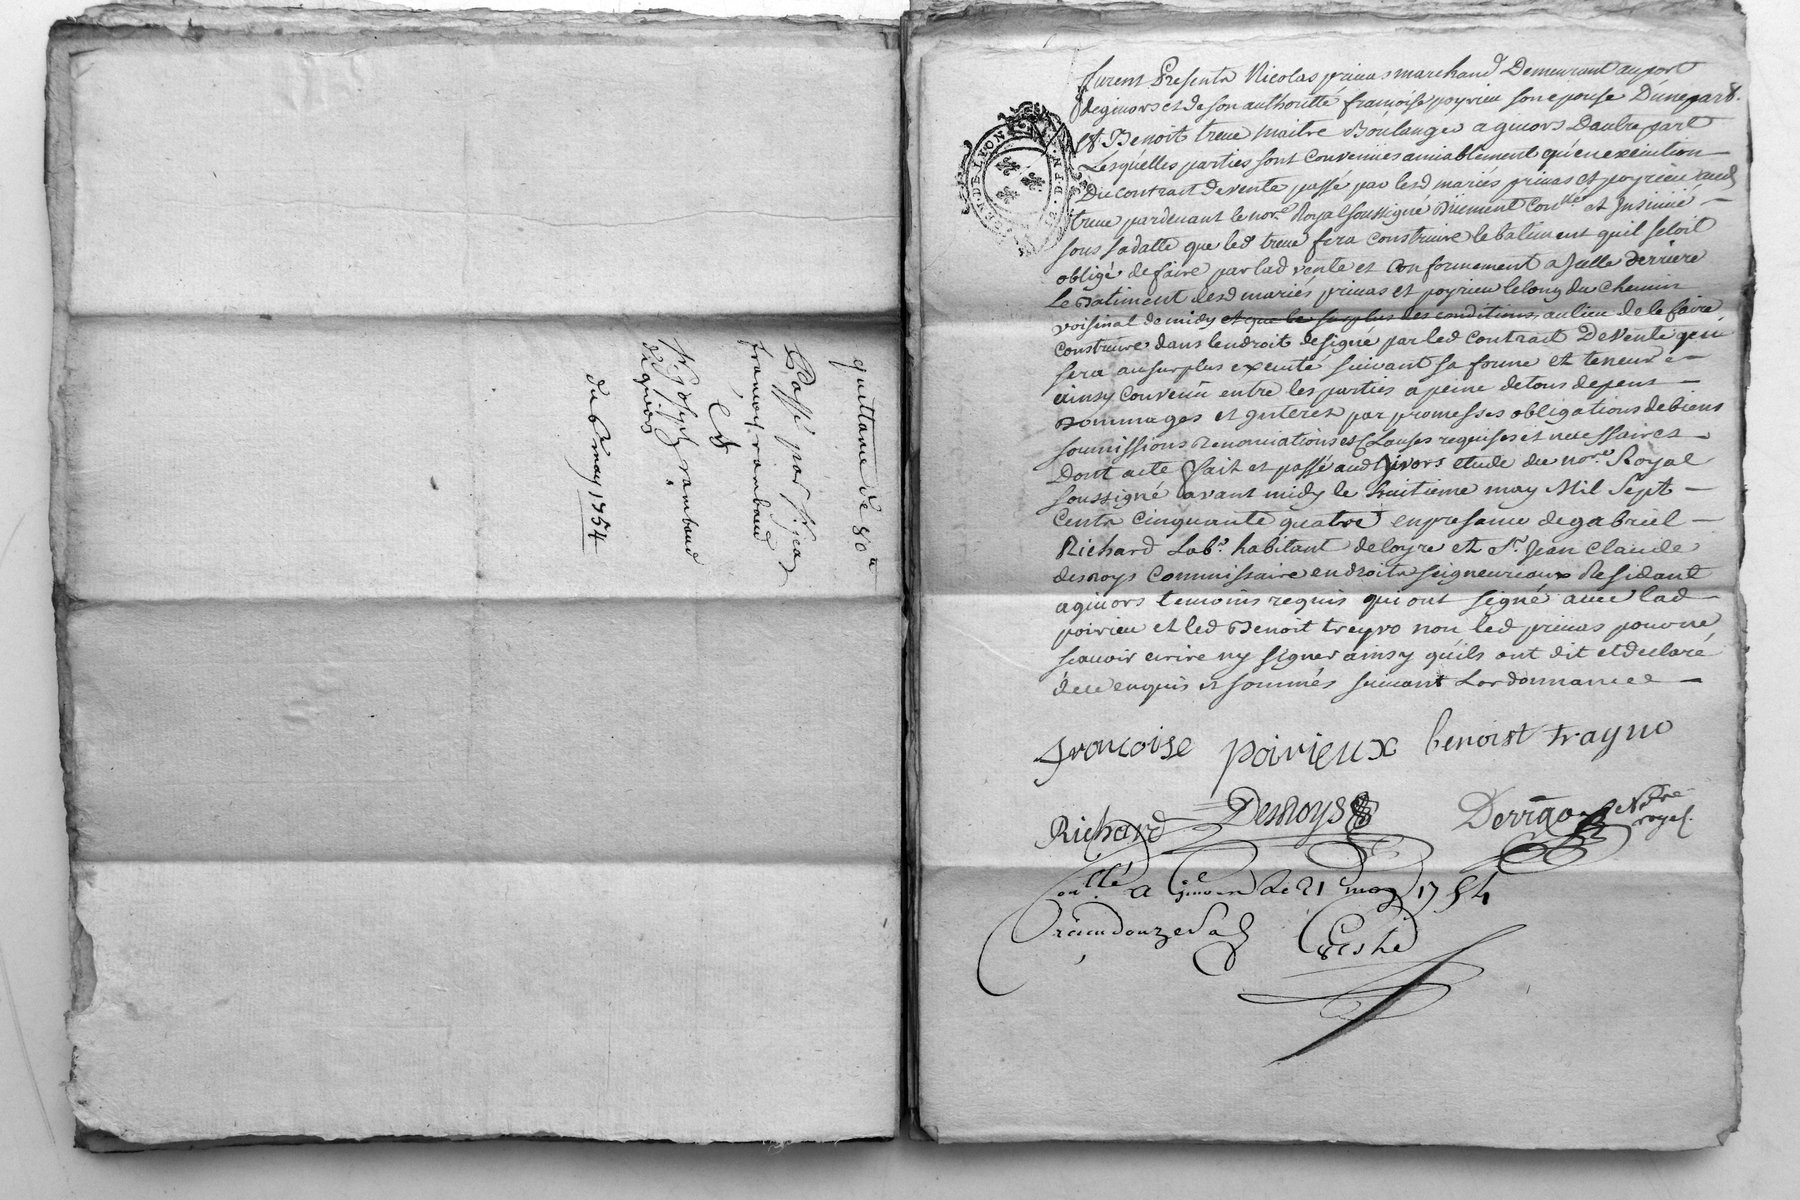 quittance de 80ᵗᵗ
Passé par Sr.
françois rambaud
Et
Sr. Joseph rambaud
de givors
du 6 may 1754
GEN. DE LYON
furent Presents Nicolas privas marchand Demeurant au port
de givors et de son authoritté françoise poyrieu son epouse Dune part.
Et Benoit treve maitre Boulanger a givors Dautre part
Lesquelles parties sont convenües amiablement qu'en execution
Du contract de vente passé par lesd mariés privas et poyrieu aud
treve pardevant le nore. Royal soussigné Duement conllé et Insinué
sous sa datte que led treve fera construire le batiment quil setoit
obligé de faire par lad vente et conformement a Jcelle derriere
le Batiment desd mariés privas et poyrieu le long du chemin
voisinal de midy et que le surplus des conditions, au lieu de le faire
construire dans lendroit designé par led contract De vente qui
sera au surplus executé suivant sa forme et teneur
ainsy convenü entre les parties a peine de tous depens
Dommages et gnterets par promesses obligations de biens
soumissions Renonciations et Clauses requises et necessaires
Dont acte fait et passé aud givors etude du nore. Royal
soussigné avant midy le huitieme may Mil Sept
Cents Cinquante quatre en presance de gabriel
Richard Labr. habitant de loyre et Sr. Jean Claude
desroys Commissaire en droits seigneuriaux Residant
a givors temoins requis qui ont signé avec lad
poirieu et led Benoit treyvo non led privas pour ne
scavoir ecrire ny signer ainsy quils ont dit et declaré
de ce enquis et sommés suivant Lordonnance
francoise poirieux benoist trayvo
Richard Desroys Notre royal.
Conllé a Givors le 21 may 1754
Recu douze sols